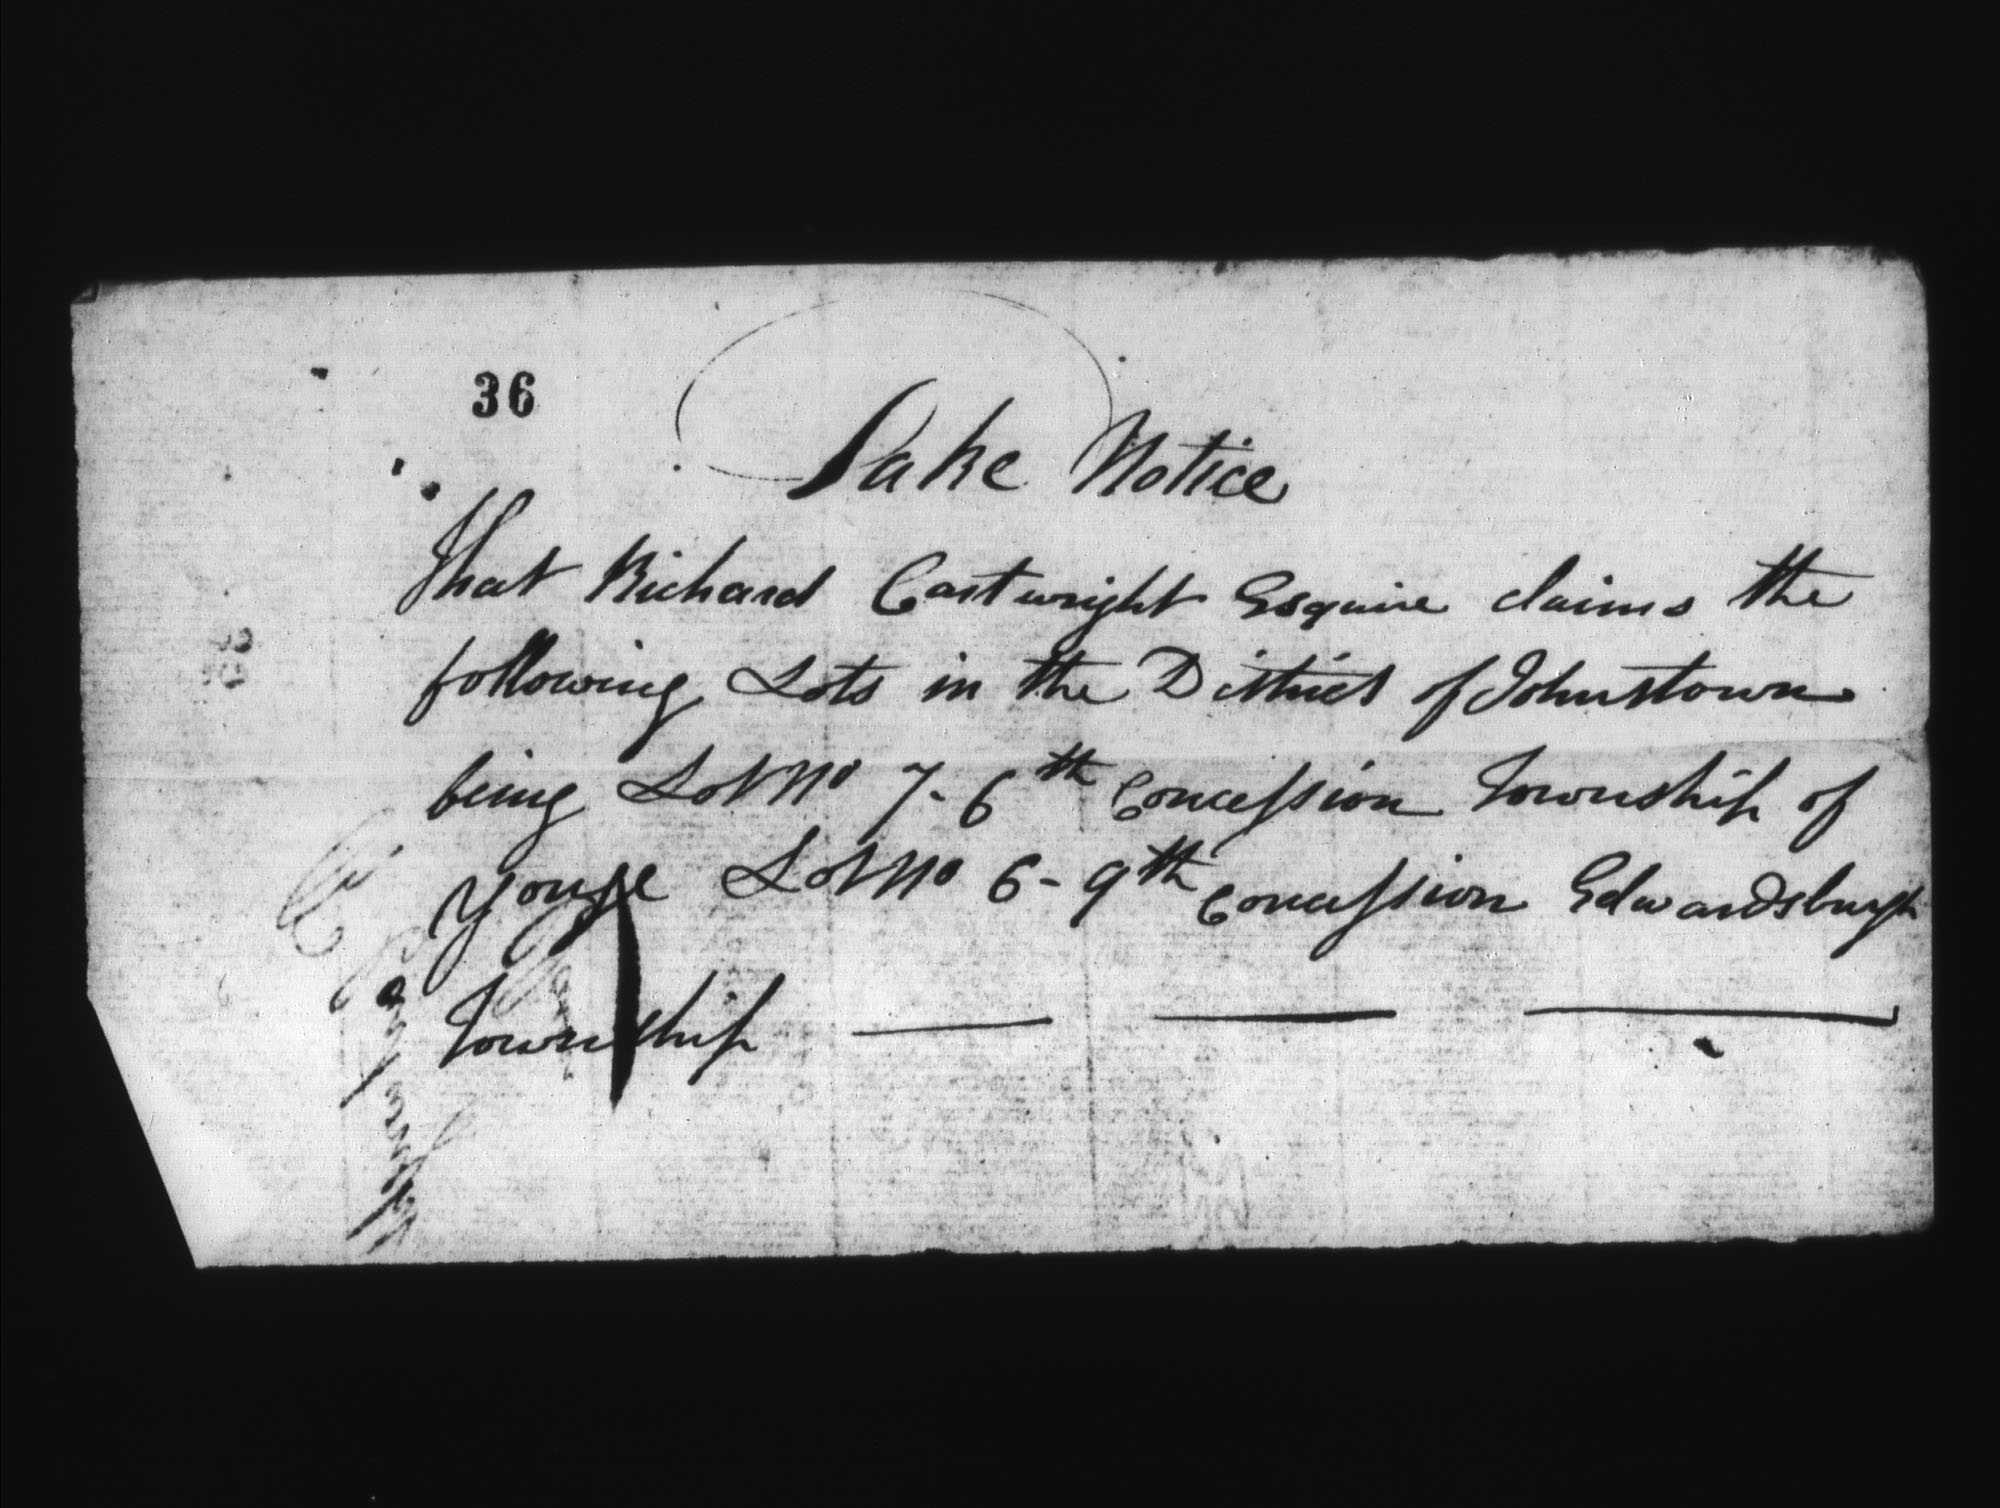 36
Take Notice
That Richard Cartwright Esquire claims the
following Lots in the District of Johnstown
being Lot No 7- 6th Concession Township of
Yonge Lot No 6- 9th Concession Edwardsburgh
Township